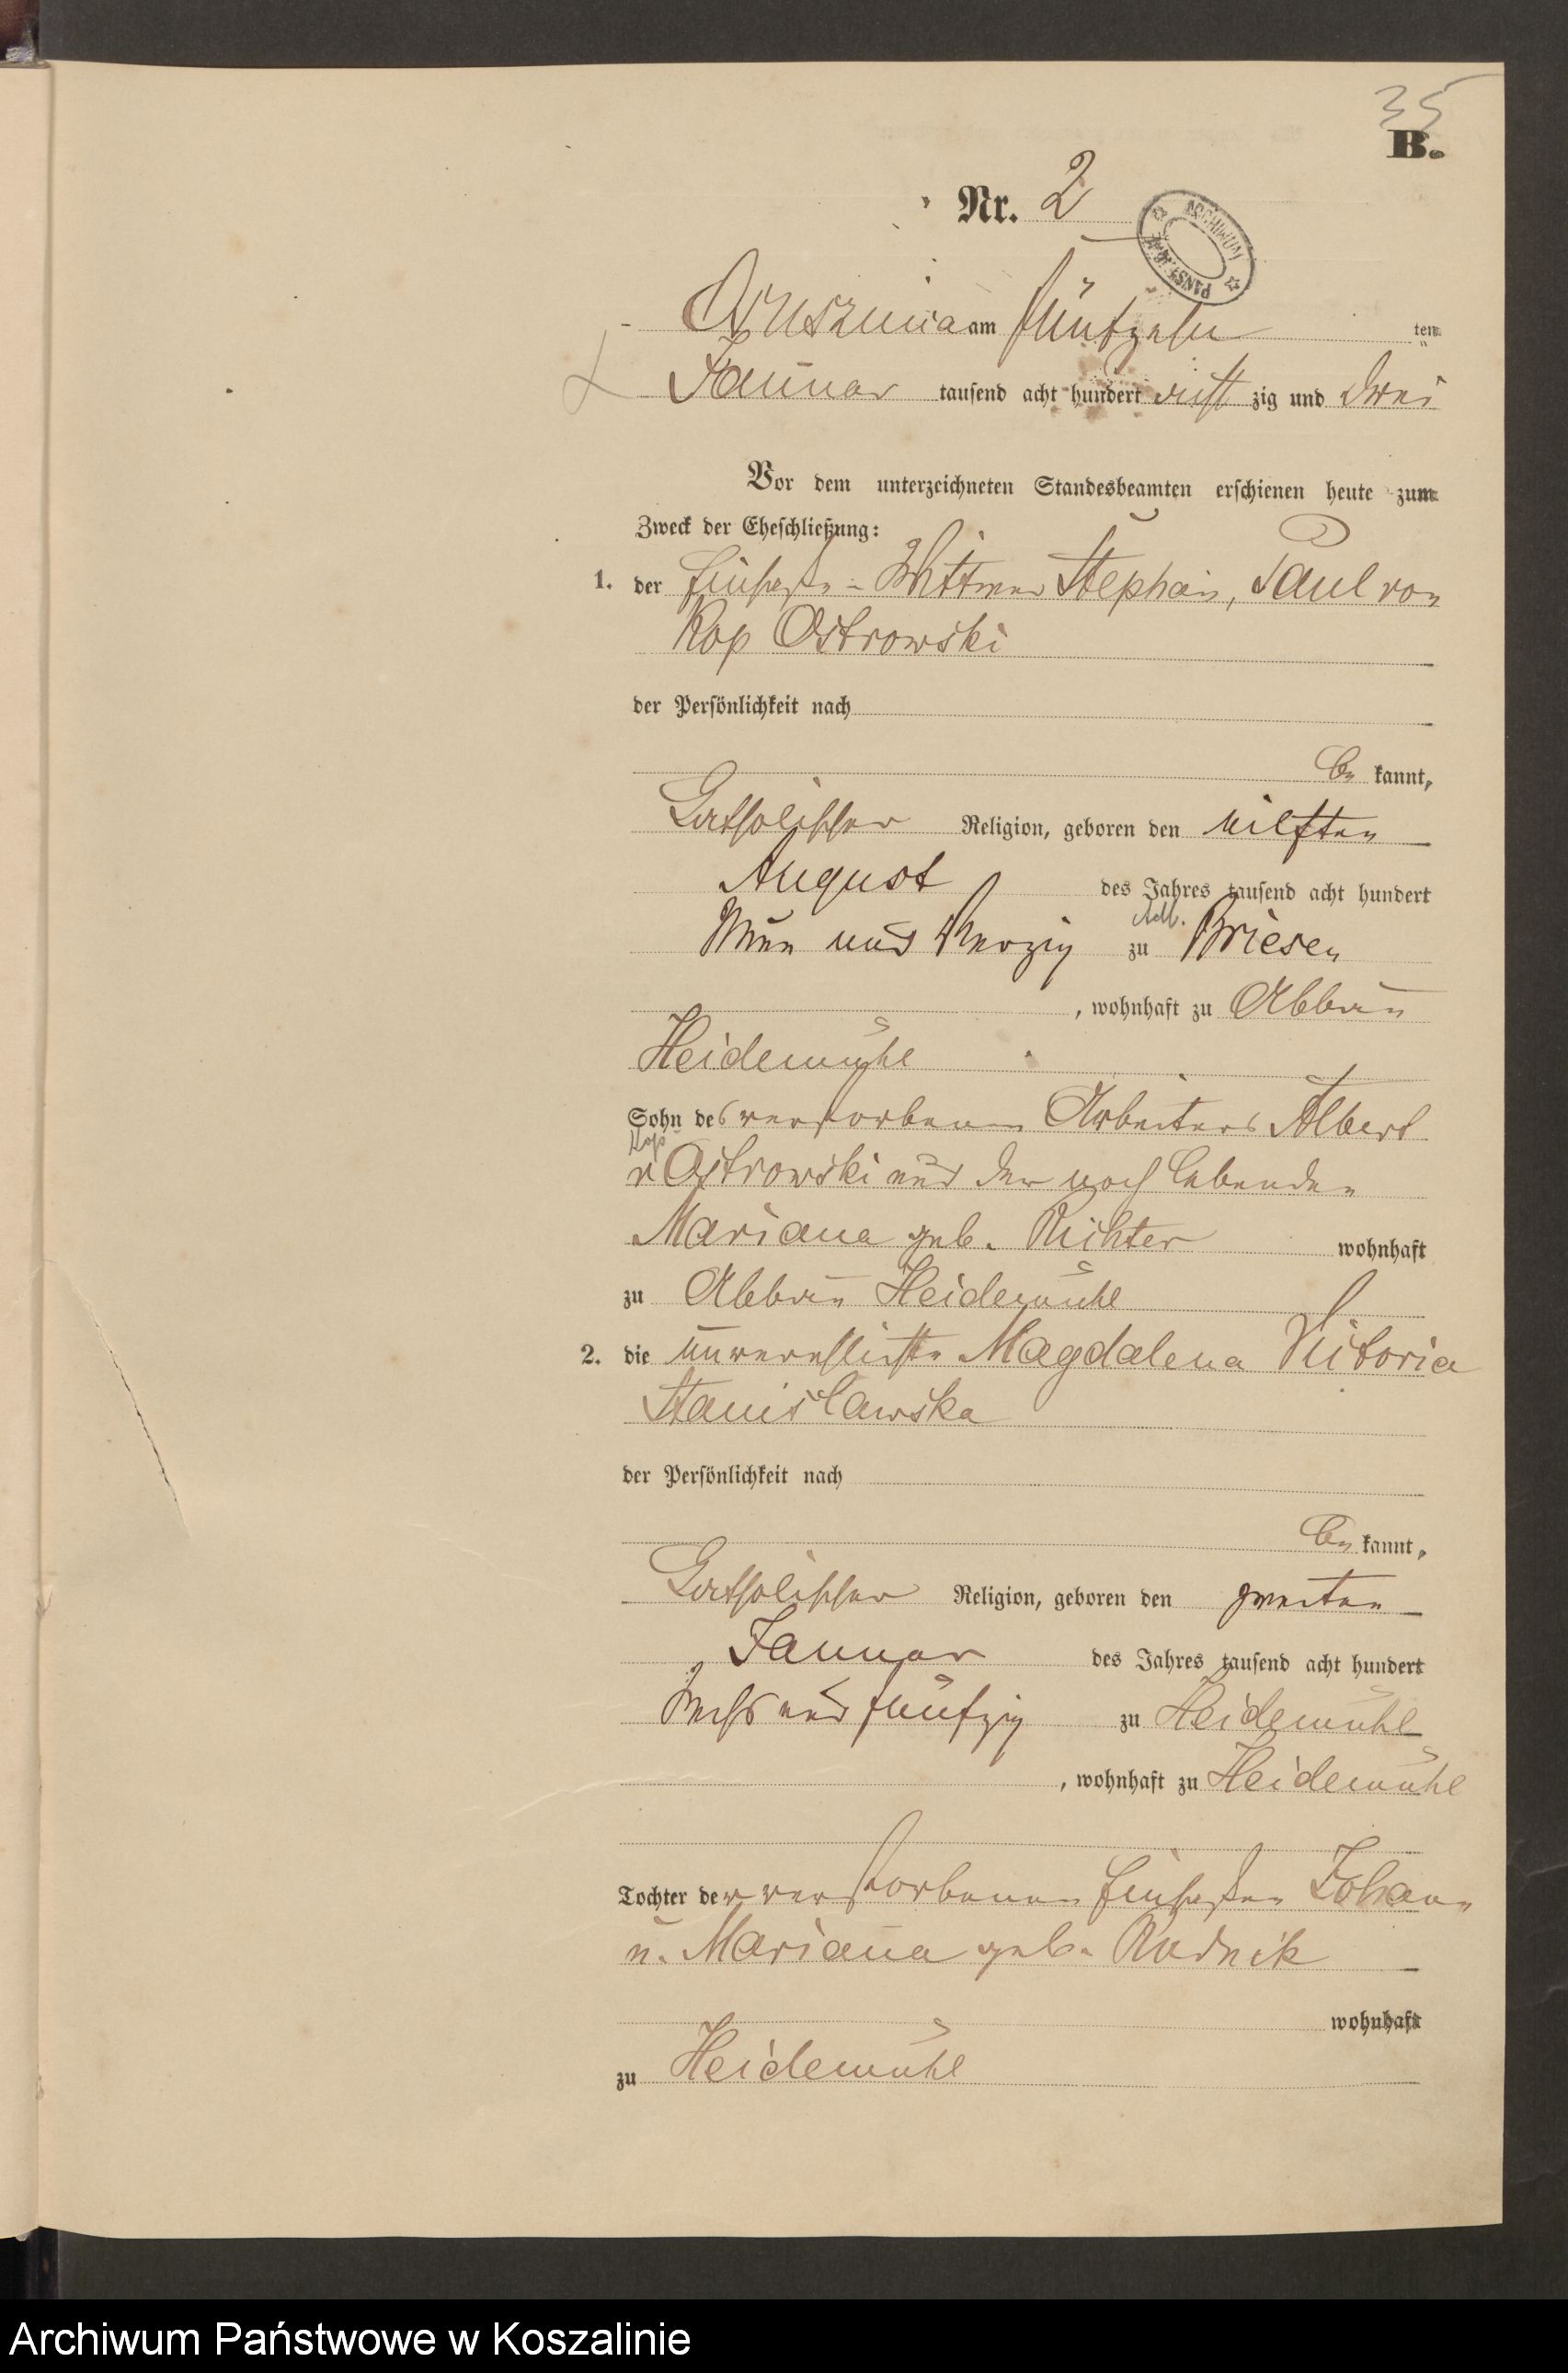 35
B.
Nr. 2
ARCHIWUM PAŃSTW.
Gruszmia am fünfzehn ten
Januar tausend acht hundert acht zig und drei
Vor dem unterzeichneten Standesbeamten erschienen heute zum
Zweck der Eheschließung:
1. der Einsaße-Wittwer Stephan, Paul von
Kop Ostrowski
der Persönlichkeit nach
be kannt,
katholischer Religion, geboren den eilften
August des Jahres tausend acht hundert
Neun und Vierzig zu Adl. Briesen
, wohnhaft zu Abbau
Heidemühl
Sohn des verstorbenen Arbeiters Albert
v Kop Ostrowski und der noch lebenden
Mariana geb. Richter wohnhaft
zu Abbau Heidemühl
2. die unverehlichte Magdalena Victoria
Stanislawska
der Persönlichkeit nach
be kannt,
katholischer Religion, geboren den zweiten
Januar des Jahres tausend acht hundert
Sechs und fünfzig zu Heidemühl
, wohnhaft zu Heidemühl
Tochter der verstorbenen Einsaßen Johann
u. Mariana geb. Rudnik
wohnhaft
zu Heidemühl
Archiwum Państwowe w Koszalinie